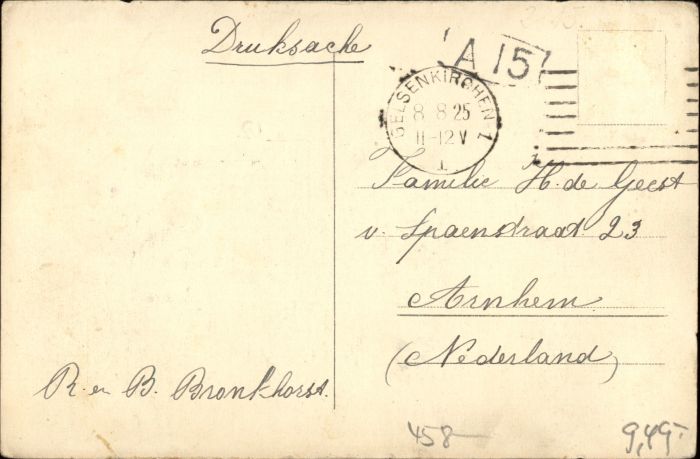 Druksache
A 15
GELSENKIRCHEN 1
8 8 25
11-12 V
1
Familie H. de Geest
v. Spaenstraat 23
Arnhem
(Nederland)
R. en B. Bronkhorst.
458-
9,49-